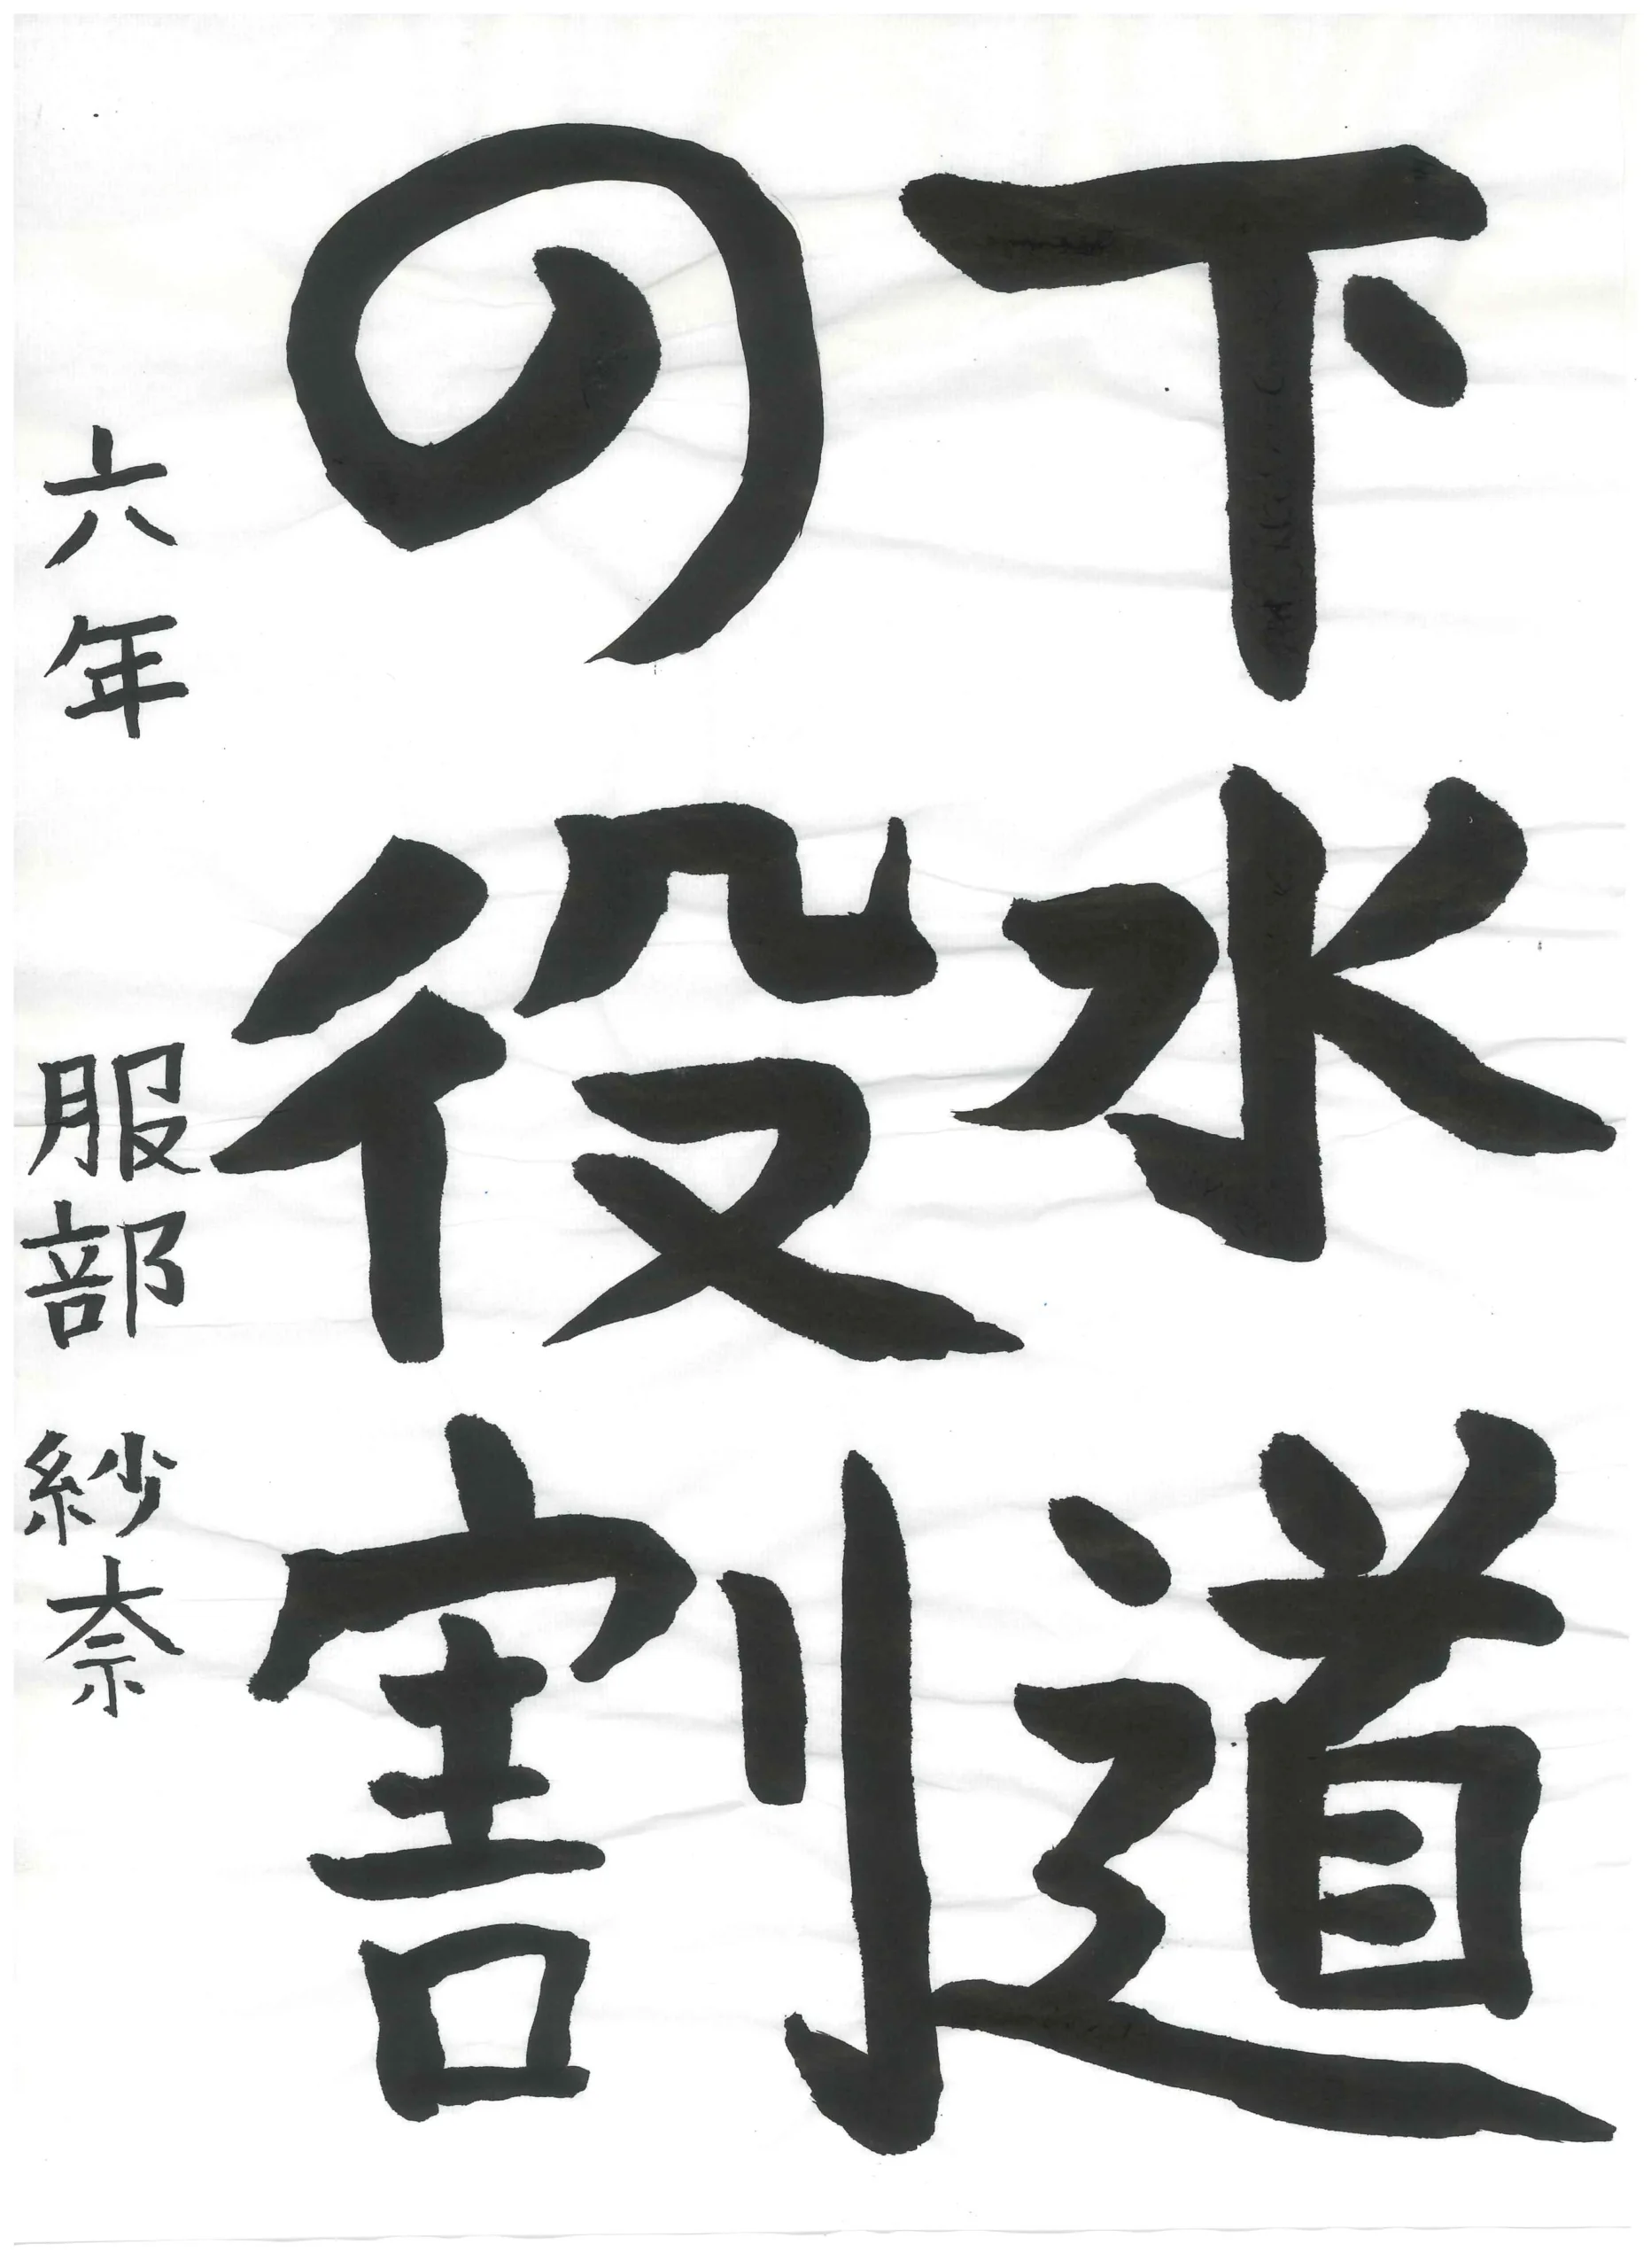 下水道
の役割
六年 服部 紗奈